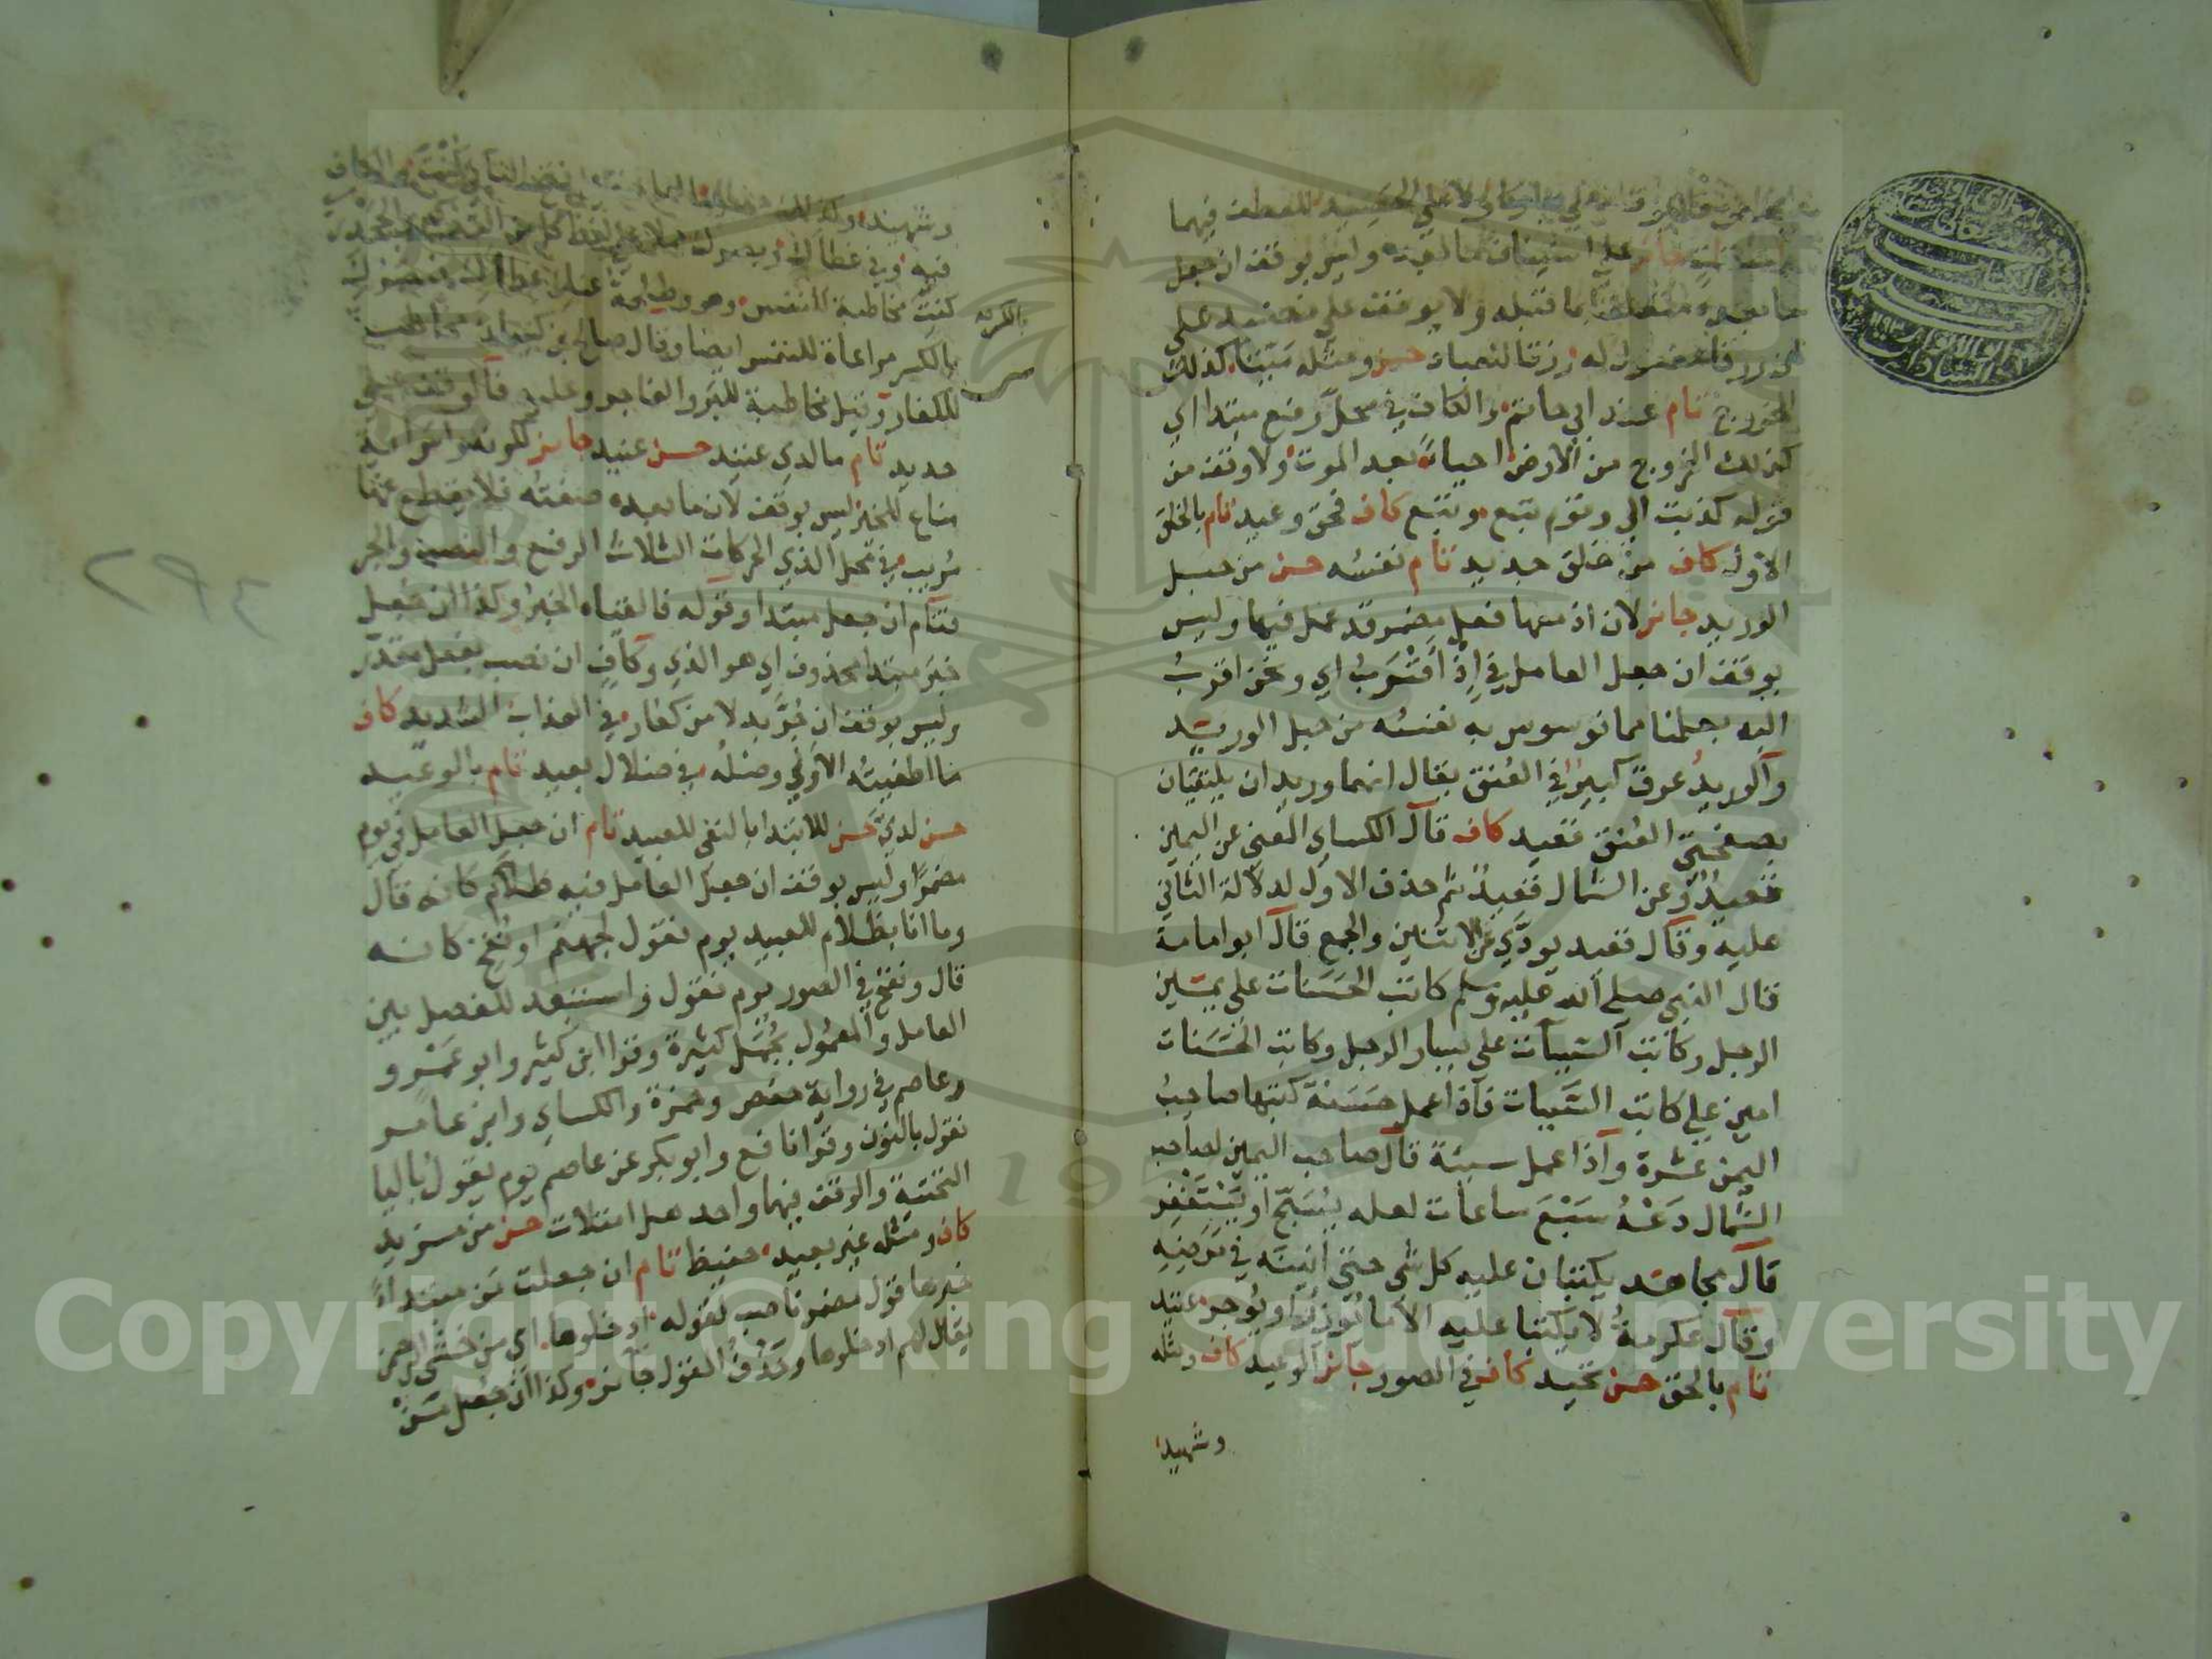 لا على الحصيد للعطف فيهما
جائز على استيناف ما بعده وليس بوقف ان جعل
ما بعده متعلقا بما قبله ولا يوقف على نضيد على
ان رزقا مفعول له رزقا للعباد حسن ومثله ميتا كذلك
الخروج تام عند ابي حاتم والكاف في محل رفع مبتدا اي
كذلك الخروج من الارض احياء بعد الموت ولا وقف من
قوله كذبت الي وقوم تبع وتبع كاف فحق وعيد تام بالخلق
الاول كاف من خلق جديد تام نفسه حسن من حبل
الوريد جائز لان اذ معها فعل مضمر قد عمل فيها وليس
بوقف ان جعل العامل في اذ اقرب اي ونحن اقرب
اليه بعلمنا مما توسوس به نفسه من حبل الوريد
والوريد عرق كبير في العنق يقال انهما وريدان يلتقيان
بصفحتي العنق قعيد كاف قال الكساي المعني عن اليمين
قعيد وعن الشمال قعيد ثم حذف الاول لدلالة الثاني
عليه وقال قعيد يودي عن الاثنين والجمع قال ابوامامة
قال النبي صلي الله عليه وسلم كاتب الحسنات علي يمين
الرجل وكاتب السيات علي يسار الرجل وكاتب الحسنات
امين علي كاتب السيات فاذا عمل حسنة كتبها صاحب
اليمين عشرة واذا عمل سيئة قال صاحب اليمين لصاحب
الشمال دعه سبع ساعات لعله يسبح او يستغفر
قال مجاهد يكتبان عليه كل شي حتي انينه في مرضه
وقال عكرمة لا يكتبا عليه الا ما يوزر او يوجر عتيد
تام بالحق حسن تحيد كاف في الصور جائز الوعيد كاف ومثله
وشهيد
وشهيد
فيه وفي غطاك وبصرك حملا على لفظ كل من التذكير والجحدري
كنت مخاطبة للنفس وهو وطلحة عنك غطاك فبصرك
بالكسر مراعاة للنفس ايضا وقال صالح بن كيسان مخاطب
للكفار وقيل مخاطبة للبر والفاجر وعليه فالوقف على
حديد تام ما لدي عتيد حسن عنيد جائز
مناع للخير ليس بوقف لان ما بعده صفته فلا يقطع عنها
مريب في محل الذي الحركات الثلاث الرفع والنصب والجر
فتام ان جعل مبتدا وقوله فالقياه الخبر وكذا ان جعل
خبر مبتدا محذوف اي هو الذي وكاف ان نصب بفعل مقدر
وليس بوقف ان جر بدلا من كفار في العذاب الشديد كاف
ما اطغيته الاولي وصله في ضلال بعيد تام بالوعيد
حسن لدي حسن للابتدا بالنفي للعبيد تام ان جعل العامل في يوم
مضمرا وليس بوقف ان جعل العامل فيه ظلام كانه قال
وما انا بظلام للعبيد يوم نقول لجهنم او نفخ كانه
قال ونفخ في الصور يوم نقول واستبعد للفصل بين
العامل والمعمول بجمل كثيرة وقرا ابن كثير وابو عمرو
وعاصم في رواية حفص وحمزة والكساي وابن عامر
نقول بالنون وقرا نافع وابو بكر عن عاصم يوم يقول باليا
التحتية والوقف فيهما واحد هل امتلات حسن من مزيد
كاف ومثله غير بعيد حفيظ تام ان جعلت من مبتدا
خبرها قول مضمر ناصب لقوله ادخلوها اي من خشي الرحمن
يقال لهم ادخلوها وحذف القول جائز وكذا ان جعل من
Copyright © King Saud University
195